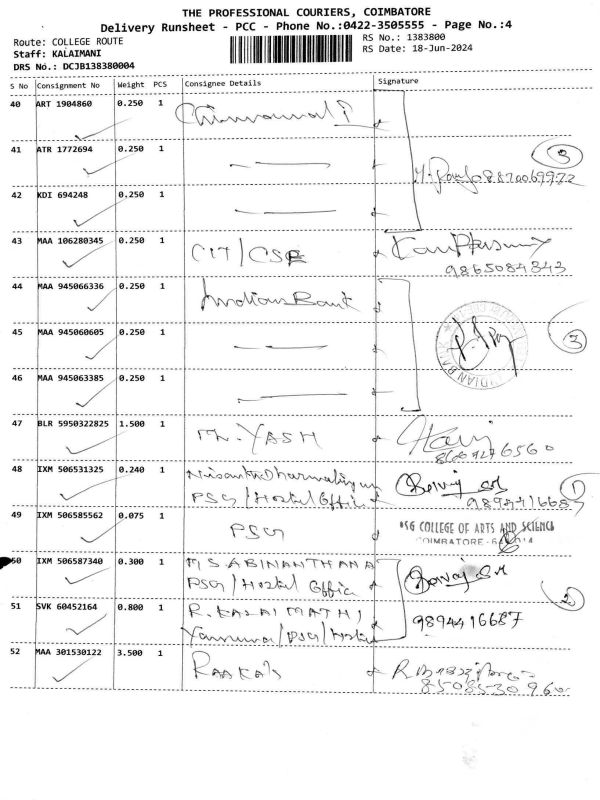 THE PROFESSIONAL COURIERS, COIMBATORE
Delivery Runsheet - PCC - Phone No.:0422-3505555 - Page No.:4
Route: COLLEGE ROUTE
Staff: KALAIMANI
DRS No.: DCJB138380004
RS No.: 1383800
RS Date: 18-Jun-2024
S No Consignment No Weight PCS Consignee Details Signature
40 ART 1904860 0.250 1
41 ATR 1772694 0.250 1
3
8870069972
42 KDI 694248 0.250 1
43 MAA 106280345 0.250 1 CIT/CSE
9865084343
44 MAA 945066336 0.250 1 Indian Bank
45 MAA 945060605 0.250 1
3
46 MAA 945063385 0.250 1
47 BLR 5950322825 1.500 1 YASH
48 IXM 506531325 0.240 1
PSG/Hostel Office
1
9894416687
49 IXM 506585562 0.075 1 PSG
PSG COLLEGE OF ARTS AND SCIENCE
COIMBATORE - 641 014
50 IXM 506587340 0.300 1 M S ABINANTHANA
PSG/Hostel Office
51 SVK 60452164 0.800 1 R. KALAIMATHI
Yamuna/PSG/Hostel
9894416687
2
52 MAA 301530122 3.500 1 RAAKa's